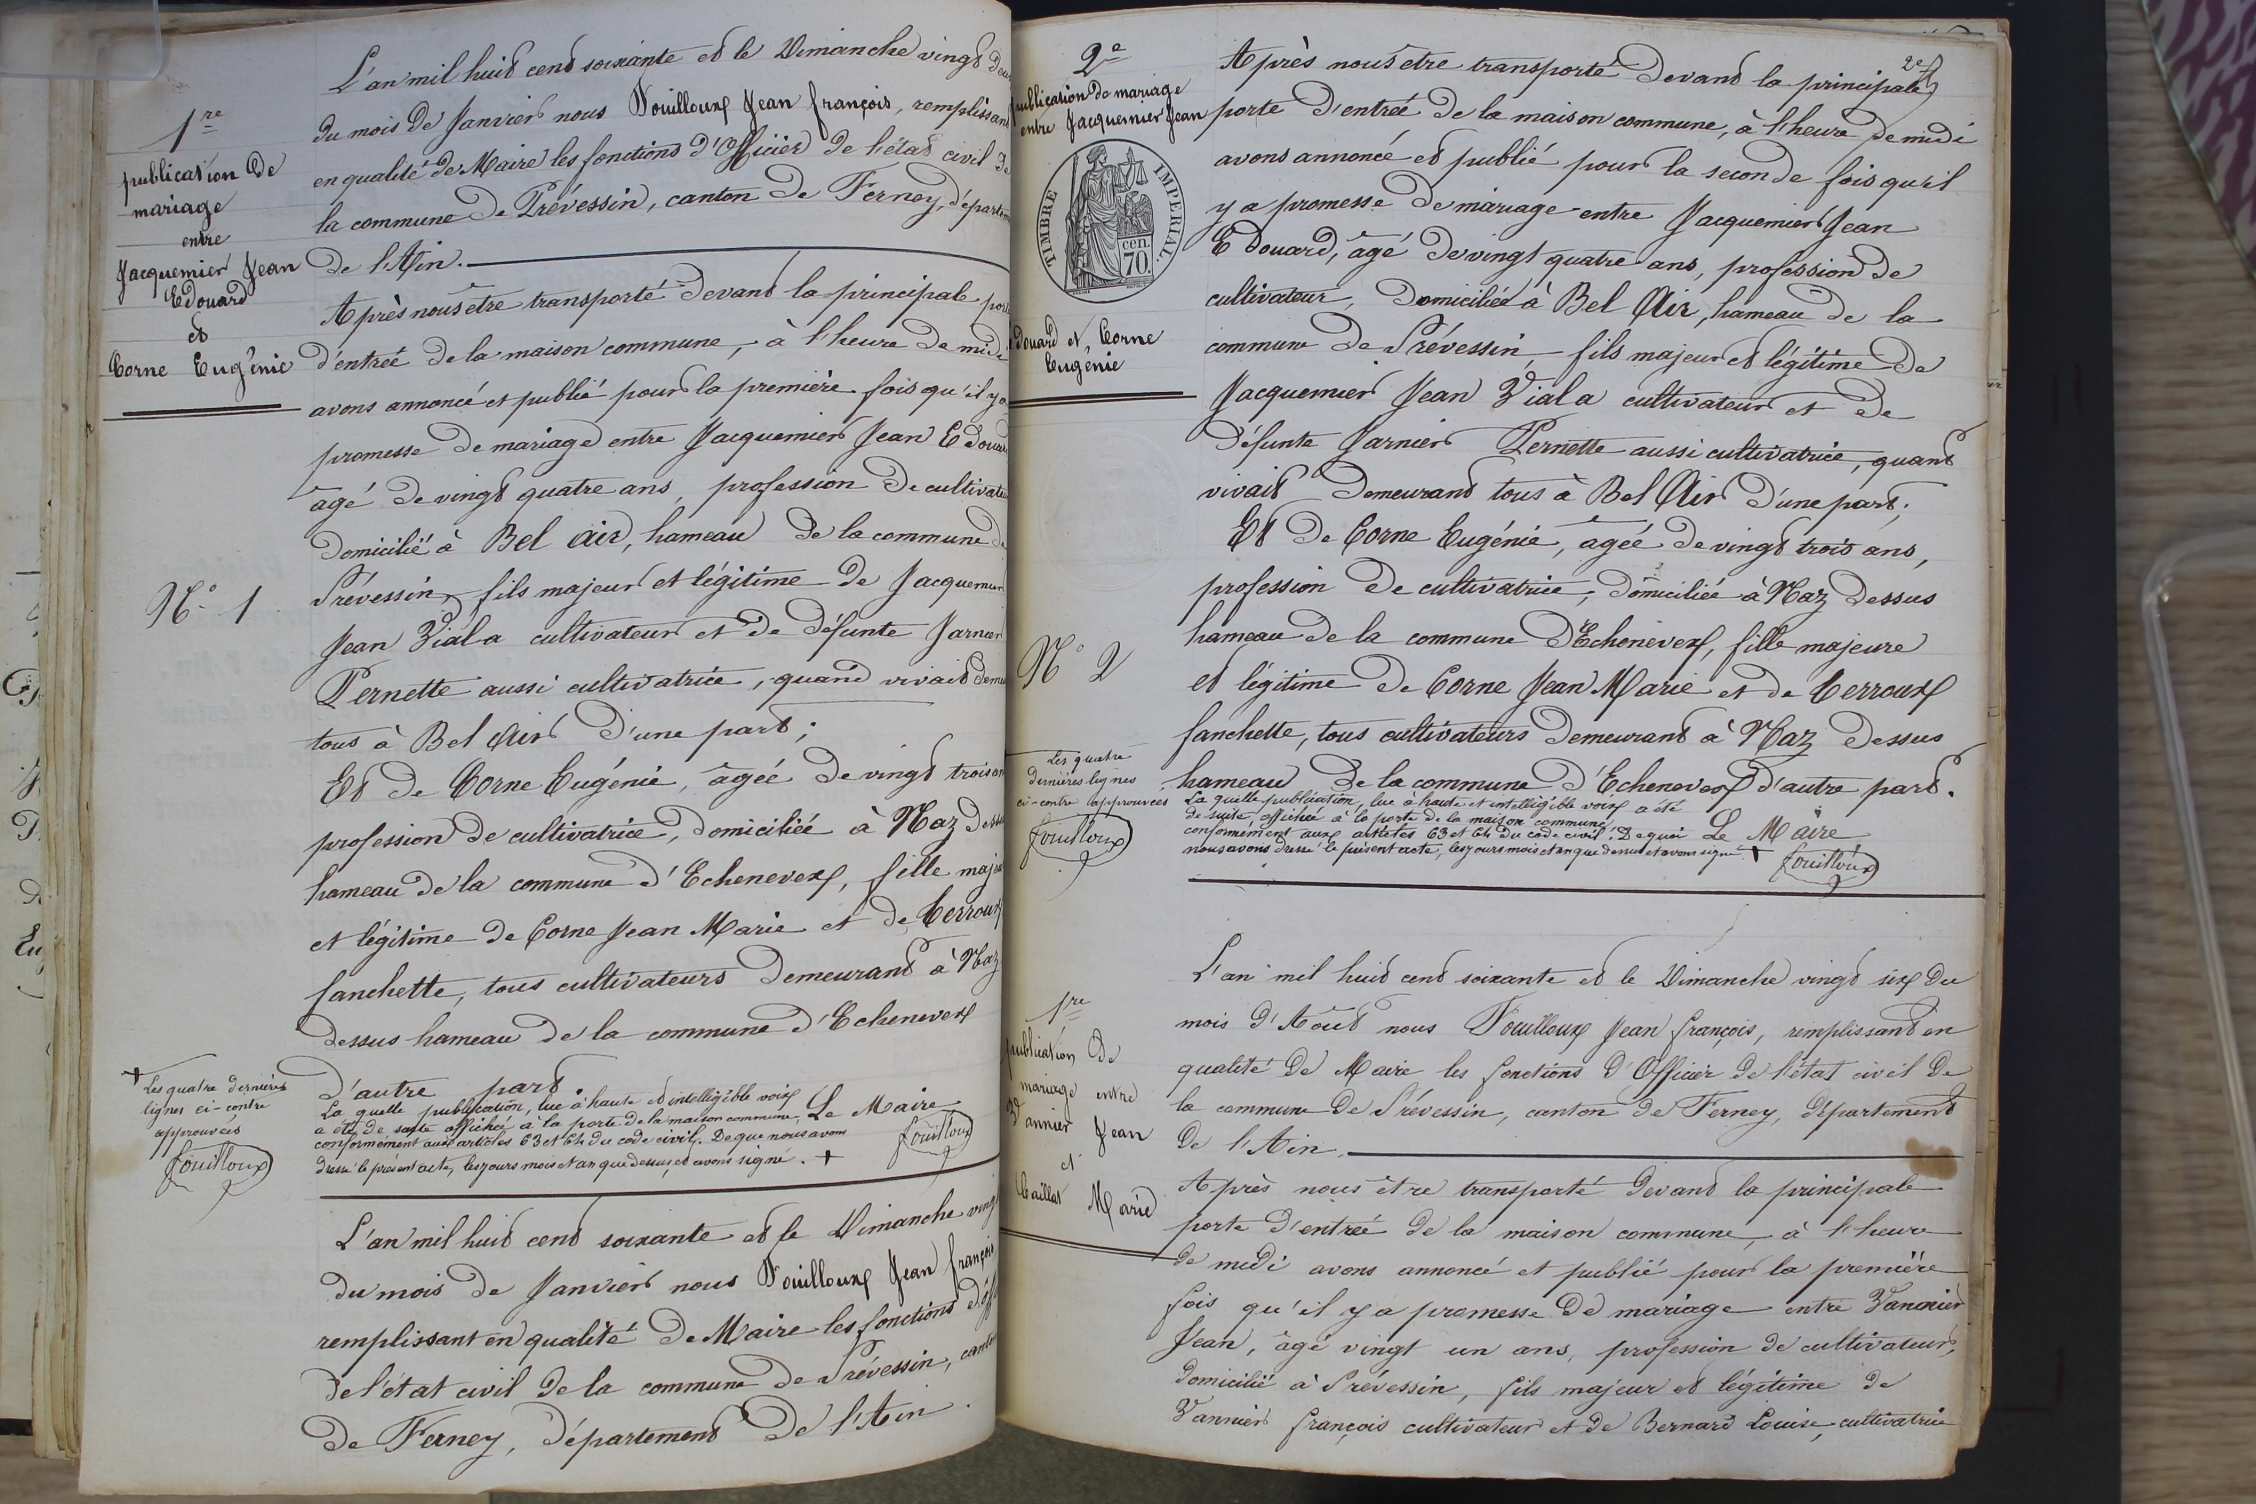 1re
publication de
mariage
entre
Jacquemier Jean
Edouard
et
Corne Eugénie
N° 1
L'an mil huit cent soixante et le Dimanche vingt deux
du mois de Janvier nous Fouilloux Jean françois, remplissant
en qualité de Maire les fonctions d'Officier de l'état civil de
la commune de Prévessin, canton de Ferney, départem
de l'Ain.
Après nous être transporté devant la principale porte
d'entrée de la maison commune, à l'heure de midi
avons annoncé et publié pour la première fois qu'il y a
promesse de mariage entre Jacquemier Jean Edouard
âgé de vingt quatre ans, profession de cultivateur
domicilié à Bel air, hameau de la commune de
Prévessin, fils majeur et légitime de Jacquemier
Jean Viala cultivateur et de défunte Jarnier
Pernette aussi cultivatrice, quand vivait demeu
tous à Bel Air d'une part;
Et de Corne Eugénie, âgée de vingt trois ans
profession de cultivatrice, domiciliée à Naz dessus
hameau de la commune d'Echenevex, fille majeu
et légitime de Corne Jean Marie et de Cerroux
fanchette, tous cultivateurs demeurant à Naz
dessus hameau de la commune d'Echenevex
d'autre part
La quelle publication, lue à haute et intelligible voix
a été de suite affichée à la porte de la maison commune,
conformément aux articles 63 et 64 du code civil. De que nous avons
dressé le présent acte, les jours mois et an que dessus, et avons signé. +
Le Maire
fouilloux
+ Les quatre dernières
lignes ci-contre
approuvées
fouilloux
L'an mil huit cent soixante et le Dimanche vingt
du mois de Janvier nous Fouilloux Jean françois
remplissant en qualité de Maire les fonctions d'Offi
de l'état civil de la commune de Prévessin, canton
de Ferney, département de l'Ain.
2e
2e
publication de mariage
entre Jacquemier Jean
TIMBRE IMPERIAL.
cen.
70.
Edouard et Corne
Eugénie
N° 2
Après nous être transporté devant la principale
porte d'entrée de la maison commune, à l'heure de midi
avons annoncé et publié pour la seconde fois qu'il
y a promesse de mariage entre Jacquemier Jean
Edouard, âgé de vingt quatre ans, profession de
cultivateur, domicilié à Bel Air, hameau de la
commune de Prévessin, fils majeur et légitime de
Jacquemier Jean Viala cultivateur et de
défunte Jarnier Pernette aussi cultivatrice, quant
vivait demeurant tous à Bel Air d'une part;
Et de Corne Eugénie, âgée de vingt trois ans,
profession de cultivatrice, domiciliée à Naz dessus
hameau de la commune d'Echenevex, fille majeure
et légitime de Corne Jean Marie et de Cerroux
fanchette, tous cultivateurs demeurant à Naz dessus
hameau de la commune d'Echenevex d'autre part.
La quelle publication, lue à haute et intelligible voix a été
de suite affichée à la porte de la maison commune,
conformément aux articles 63 et 64 du code civil. De quoi
nous avons dressé le présent acte, les jours mois et an que dessus et avons signé. +
Le Maire
fouilloux
Les quatre
dernières lignes
ci-contre approuvées
fouilloux
1re
publication de
mariage entre
Vannier Jean
et
Caillat Marie
L'an mil huit cent soixante et le Dimanche vingt six du
mois d'Août nous Fouilloux Jean françois, remplissant en
qualité de Maire les fonctions d'Officier de l'état civil de
la commune de Prévessin, canton de Ferney, département
de l'Ain.
Après nous être transporté devant la principale
porte d'entrée de la maison commune, à l'heure
de midi avons annoncé et publié pour la première
fois qu'il y a promesse de mariage entre Vannier
Jean, âgé vingt un ans, profession de cultivateur,
domicilié à Prévessin, fils majeur et légitime de
Vannier françois cultivateur et de Bernard Louise, cultivatrice